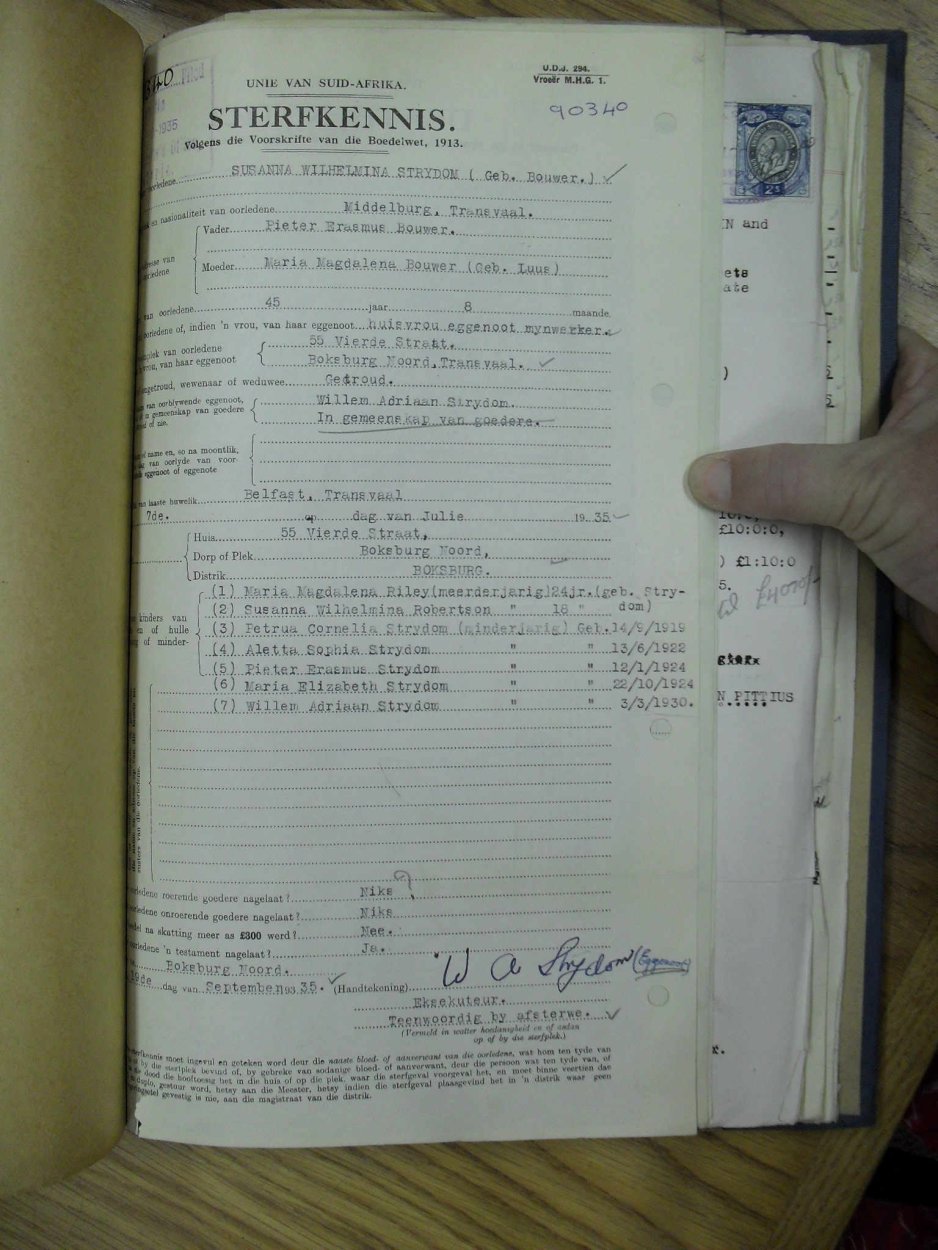 U.D.J. 294.
Vroeër M.H.G. 1.
UNIE VAN SUID-AFRIKA.
90340
STERFKENNIS.
-1935
Volgens die Voorskrifte van die Boedelwet, 1913.
oorledene SUSANNA WILHELMINA STRYDOM ( Geb. Bouwer.)
en nasionaliteit van oorledene Middelburg, Transvaal.
Vader Pieter Erasmus Bouwer.
van
Moeder Maria Magdalena Bouwer (Geb. Luus)
van oorledene 45 jaar 8 maande
oorledene of, indien 'n vrou, van haar eggenoot huisvrou eggenoot mynwerker.
van oorledene 55 Vierde Straat.
vrou, van haar eggenoot Boksburg Noord, Transvaal.
ongetroud, wewenaar of weduwee Getroud.
van oorblywende eggenoot, Willem Adriaan Strydom.
in gemeenskap van goedere In gemeenskap van goedere.
of nie.
name en, so na moontlik,
dag van oorlyde van voor-
eggenoot of eggenote
van laaste huwelik Belfast, Transvaal
7de. op dag van Julie 19 35
Huis 55 Vierde Straat,
Dorp of Plek Boksburg Noord,
Distrik BOKSBURG.
(1) Maria Magdalena Riley(meerderjarig)24jr.(geb. Stry-
kinders van (2) Susanna Wilhelmina Robertson " 18 " dom)
en of hulle (3) Petrua Cornelia Strydom (minderjarig) Geb.14/9/1919
of minder- (4) Aletta Sophia Strydom " " 13/6/1922
(5) Pieter Erasmus Strydom " " 12/1/1924
(6) Maria Elizabeth Strydom " " 22/10/1924
(7) Willem Adriaan Strydom " " 3/3/1930.
oorledene roerende goedere nagelaat? Niks
oorledene onroerende goedere nagelaat? Niks
na skatting meer as £300 werd? Nee.
oorledene 'n testament nagelaat? Ja.
Boksburg Noord.
19de dag van September 193 35. (Handtekening) W A Strydom (Eggenoot)
Eksekuteur.
Teenwoordig by afsterwe.
(Vermeld in watter hoedanigheid en of antan
op of by die sterfplek.)
sterfkennis moet ingevul en geteken word deur die naaste bloed- of aanverwant van die oorledene, wat hom ten tyde van
by die sterfplek bevind of, by gebreke van sodanige bloed- of aanverwant, deur die persoon wat ten tyde van, of
die dood die hooftoesig het in die huis of op die plek, waar die sterfgeval voorgeval het, en moet binne veertien dae
in duplo, gestuur word, hetsy aan die Meester, hetsy indien die sterfgeval plaasgevind het in 'n distrik waar geen
gevestig is nie, aan die magistraat van die distrik.
N and
ets
ate
)
£10:0:0,
) £1:10:0
5.
N PITTIUS
r.